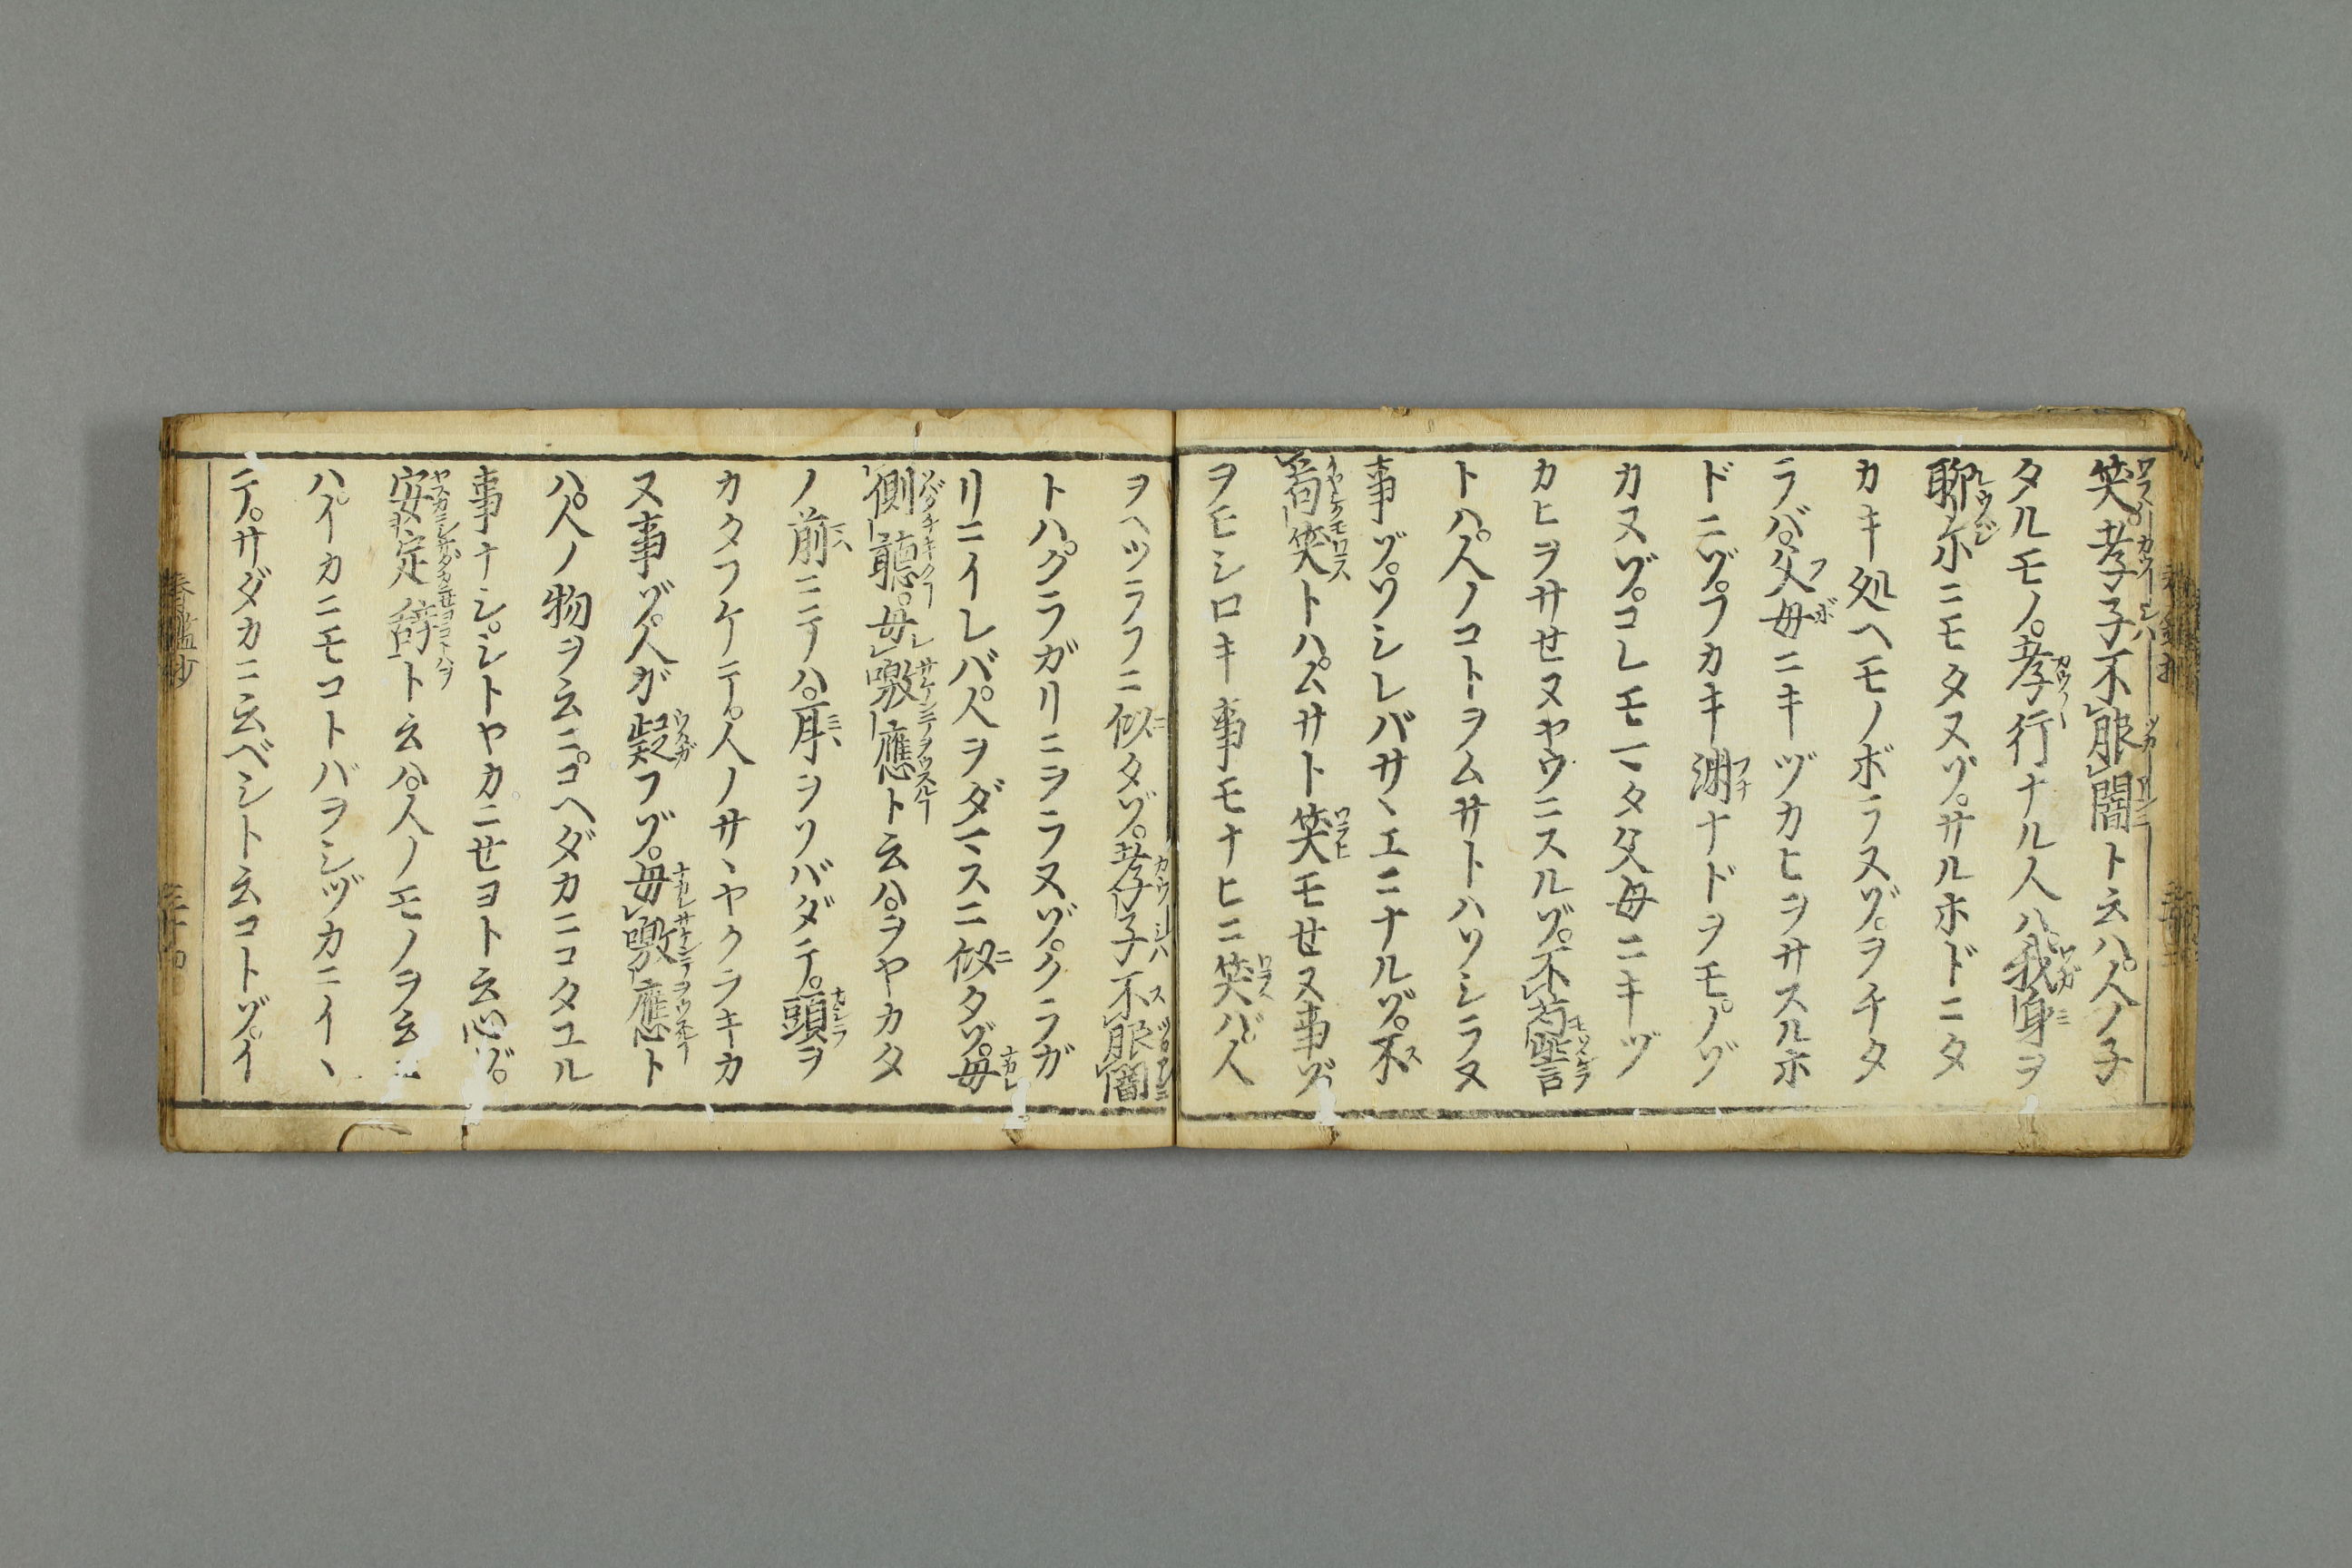 笑。孝子不服闇ト云ハ。人ノ子
タルモノ。孝行ナル人ハ。我身ヲ
聊尓ニモタヌゾ。サルホドニタ
カキ処ヘモノボラヌゾ。ヲチタ
ラバ。父母ニキヅカヒヲサスルホ
ドニゾ。フカキ淵ナドヲモ。ノゾ
カヌゾ。コレモマタ父母ニキヅ
カヒヲサセヌヤウニスルゾ。不苟訾
トハ。人ノコトヲムサトハソシラヌ
事ゾ。ソシレバサヽエニナルゾ。不
苟笑トハ。ムサト笑モせヌ事ゾ。
ヲモシロキ事モナヒニ笑バ。人
ヲヘツラフニ似タゾ。孝子不服闇
トハ。クラガリニヲラヌゾ。クラガ
リニイレバ。人ヲダマスニ似タゾ。毋
側聽。毋噭應ト云ハ。ヲヤカタ
ノ前ニテハ。耳ヲソバダテ。頭ヲ
カタフケテ。人ノサヽヤクヲキカ
ヌ事ゾ。人ガ疑フゾ。毋噭應ト
ハ。人ノ物ヲ云ニ。コヘダカニコタユル
事ナシ。シトヤカニせヨト云心ゾ。
安定辞ト云ハ。人ノモノヲ云
ハ。イカニモコトバヲシヅカニイヽ
テ。サダカニ云ベシト云コトゾ。イ